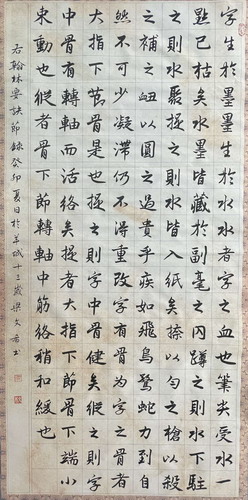 字生於墨墨生於水水者字之血也筆尖受水一
點已枯矣水墨皆藏於副毫之内蹲之則水下駐
之則水聚提之則水皆入紙矣捺以勻之槍以殺
之補之衄以圓之過貴乎疾如飛鳥驚蛇力到自
然不可少凝滯仍不得重改字有骨為字之骨者
大指下節骨是也提之則字中骨健矣縱之則字
中骨有轉軸而活絡矣提者大指下節骨下端小
東動也縱者骨下節轉軸中筋絡稍和緩也
右翰林要訣節錄癸卯夏日於羊城十三歲樂文